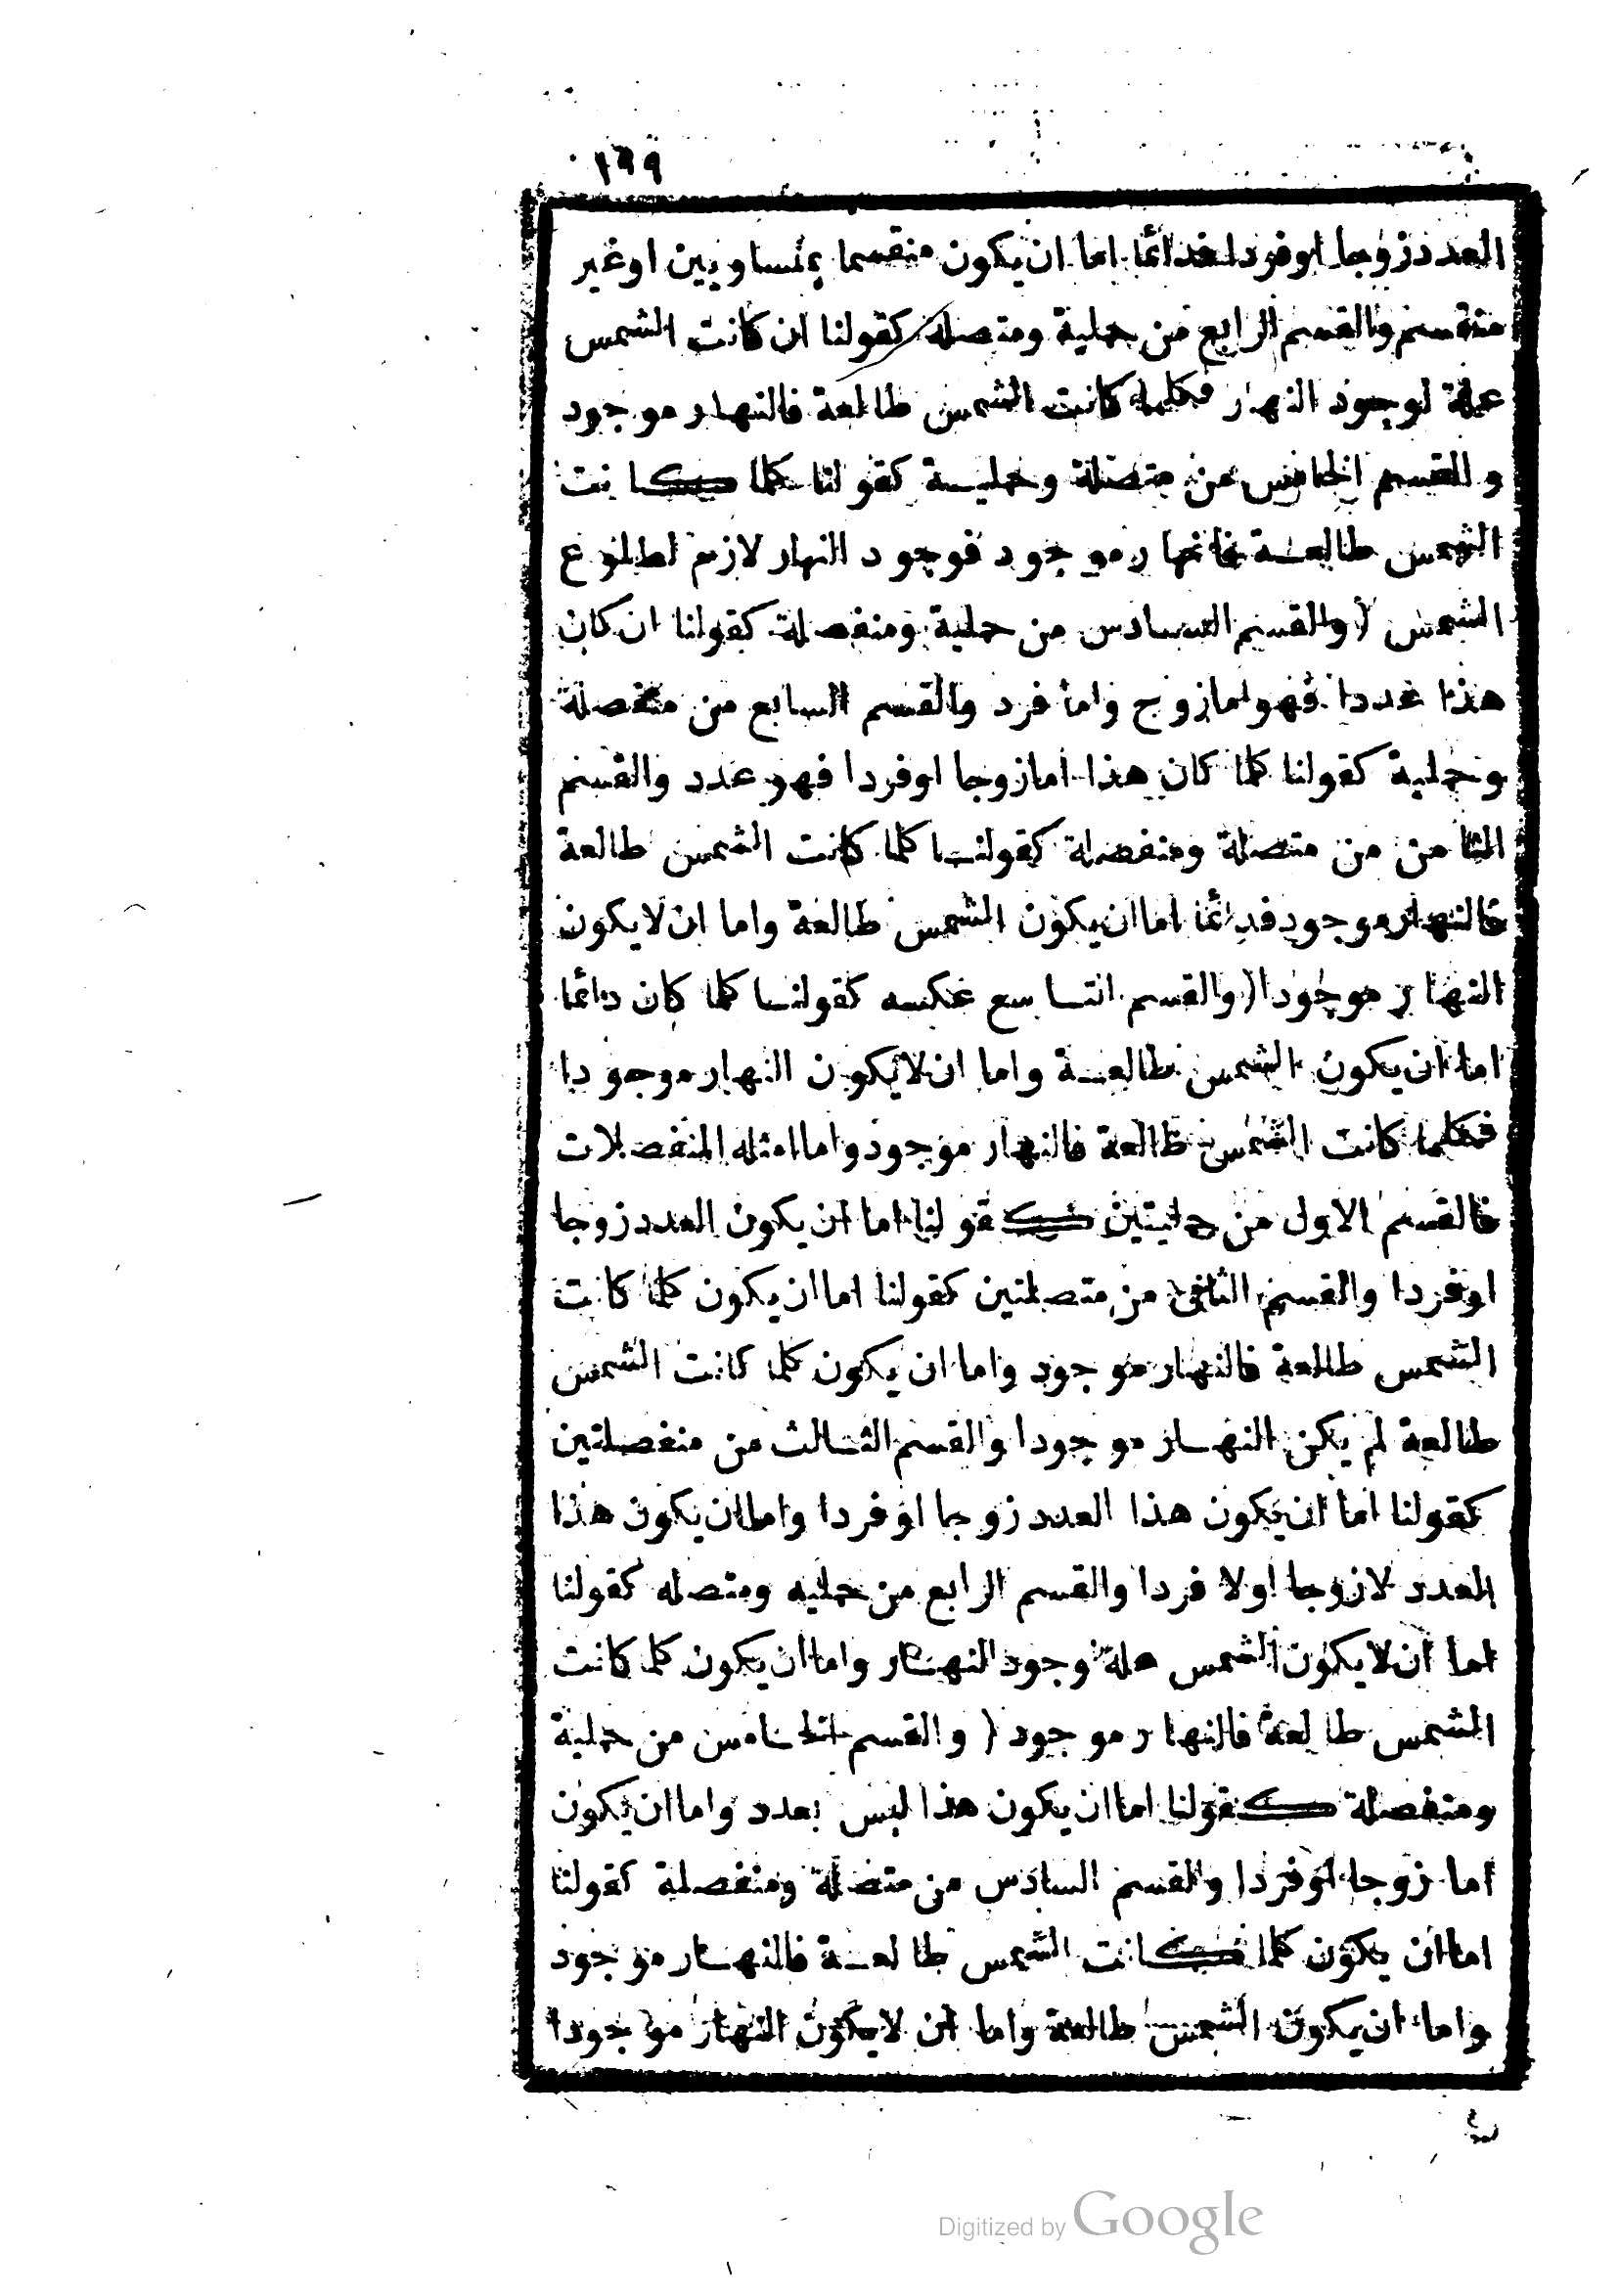 ١٦٩
العدد زوجا او فردا فدائما اما ان يكون منقسما بمتساويين او غير
منقسم والقسم الرابع من حملية ومتصلة كقولنا ان كانت الشمس
علة لوجود النهار فكلما كانت الشمس طالعة فالنهار موجود
والقسم الخامس من متصلة وحملية كقولنا كلما كانت
الشمس طالعة فالنهار موجود فوجود النهار لازم لطلوع
الشمس (والقسم السادس من حملية ومنفصلة كقولنا ان كان
هذا عددا فهو اما زوج واما فرد والقسم السابع من منفصلة
وحملية كقولنا كلما كان هذا اما زوجا او فردا فهو عدد والقسم
الثامن من متصلة ومنفصلة كقولنا كلما كانت الشمس طالعة
فالنهار موجود فدائما اما ان يكون الشمس طالعة واما ان لا يكون
النهار موجودا (والقسم التاسع عكسه كقولنا كلما كان دائما
اما ان يكون الشمس طالعة واما ان لا يكون النهار موجودا
فكلما كانت الشمس طالعة فالنهار موجود واما امثله المنفصلات
فالقسم الاول من حمليتين كقولنا اما ان يكون العدد زوجا
او فردا والقسم الثانى من متصلتين كقولنا اما ان يكون كلما كانت
الشمس طالعة فالنهار موجود واما ان يكون كلما كانت الشمس
طالعة لم يكن النهار موجودا والقسم الثالث من منفصلتين
كقولنا اما ان يكون هذا العدد زوجا او فردا واما ان يكون هذا
العدد لا زوجا اولا فردا والقسم الرابع من حمليه ومتصله كقولنا
اما ان لا يكون الشمس علة لوجود النهار واما ان يكون كلما كانت
الشمس طالعة فالنهار موجود (والقسم الخامس من حملية
ومنفصلة كقولنا اما ان يكون هذا ليس بعدد واما ان يكون
اما زوجا او فردا والقسم السادس من متصلة ومنفصلة كقولنا
اما ان يكون كلما كانت الشمس طالعة فالنهار موجود
واما ان يكون الشمس طالعة واما ان لا يكون النهار موجودا
Digitized by Google